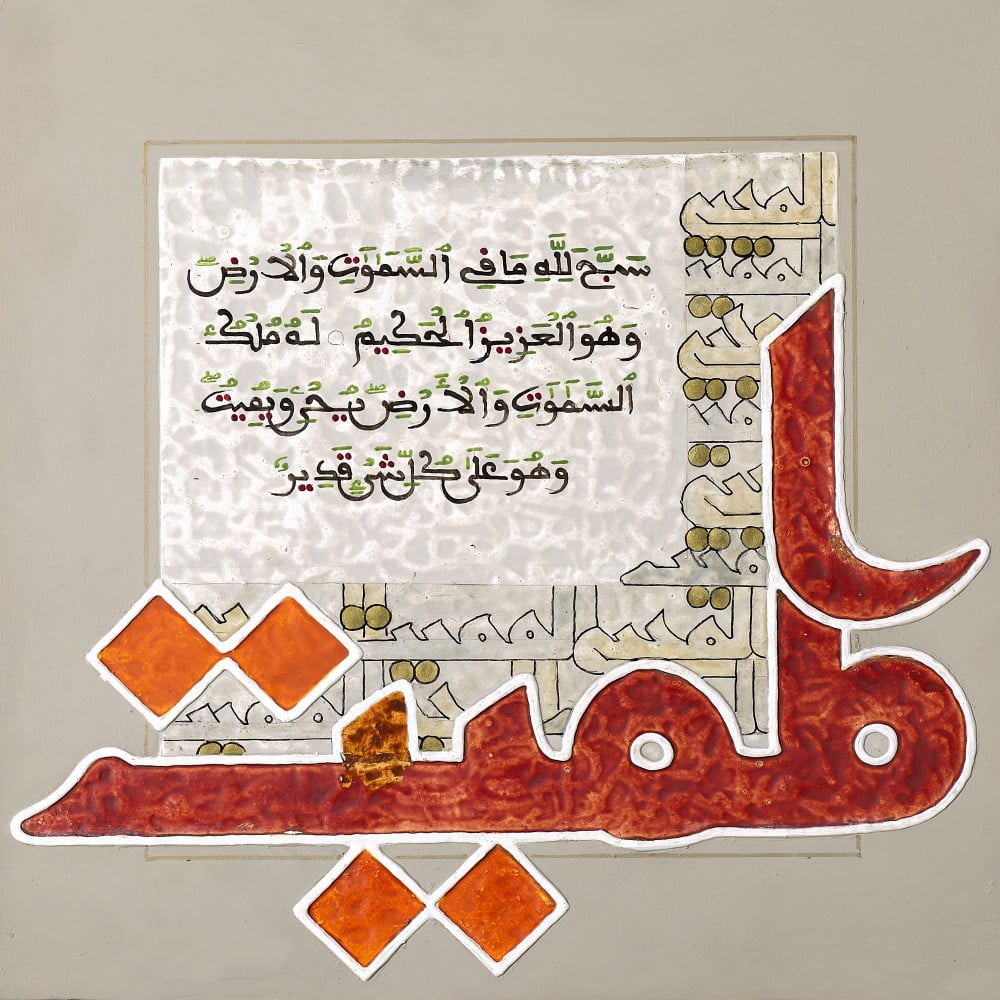 سَبَّحَ لِلَّهِ مَا فِي ٱلسَّمَٰوَٰتِ وَٱلْأَرْضِ
وَهُوَ ٱلْعَزِيزُ ٱلْحَكِيمُ لَهُ مُلْكُ
ٱلسَّمَٰوَٰتِ وَٱلْأَرْضِ يُحْيِۦ وَيُمِيتُ
وَهُوَ عَلَىٰ كُلِّ شَيْءٍ قَدِيرٌ
المميت